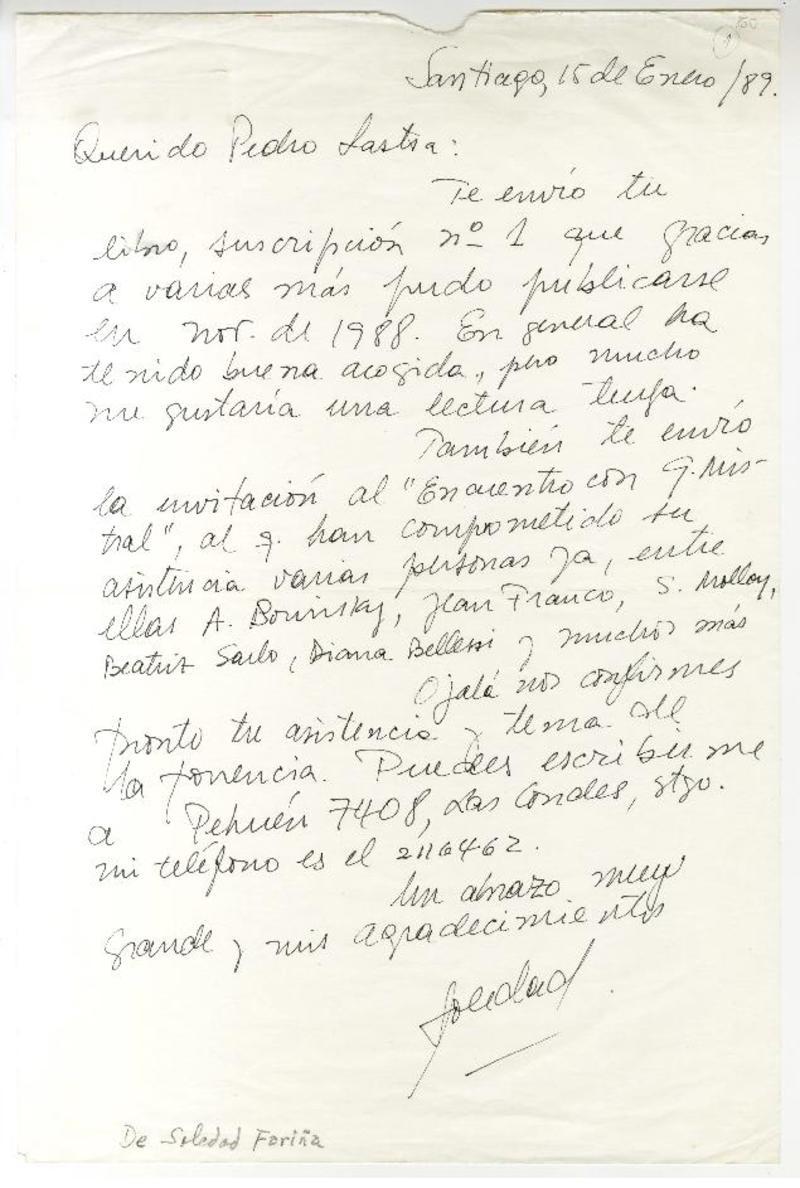 Santiago, 15 de Enero /89.
Querido Pedro Lastra:
Te envío tu
libro, suscripción nº 1 que gracias
a varias más pudo publicarse
en nov. de 1988. En general ha
tenido buena acogida, pero mucho
me gustaría una lectura tuya.
También te envío
la invitación al "Encuentro con G. Mis-
tral", al q. han comprometido su
asistencia varias personas ya, entre
ellas A. Borinsky, Jean Franco, S. Molloy,
Beatriz Sarlo, Diana Bellessi y muchos más
Ojalá nos confirmes
pronto tu asistencia y tema de
la ponencia. Puedes escribirme
a Pehuén 7408, Las Condes, Stgo.
mi teléfono es el 2116462.
Un abrazo muy
grande y mis agradecimientos
Soledad
De Soledad Fariña